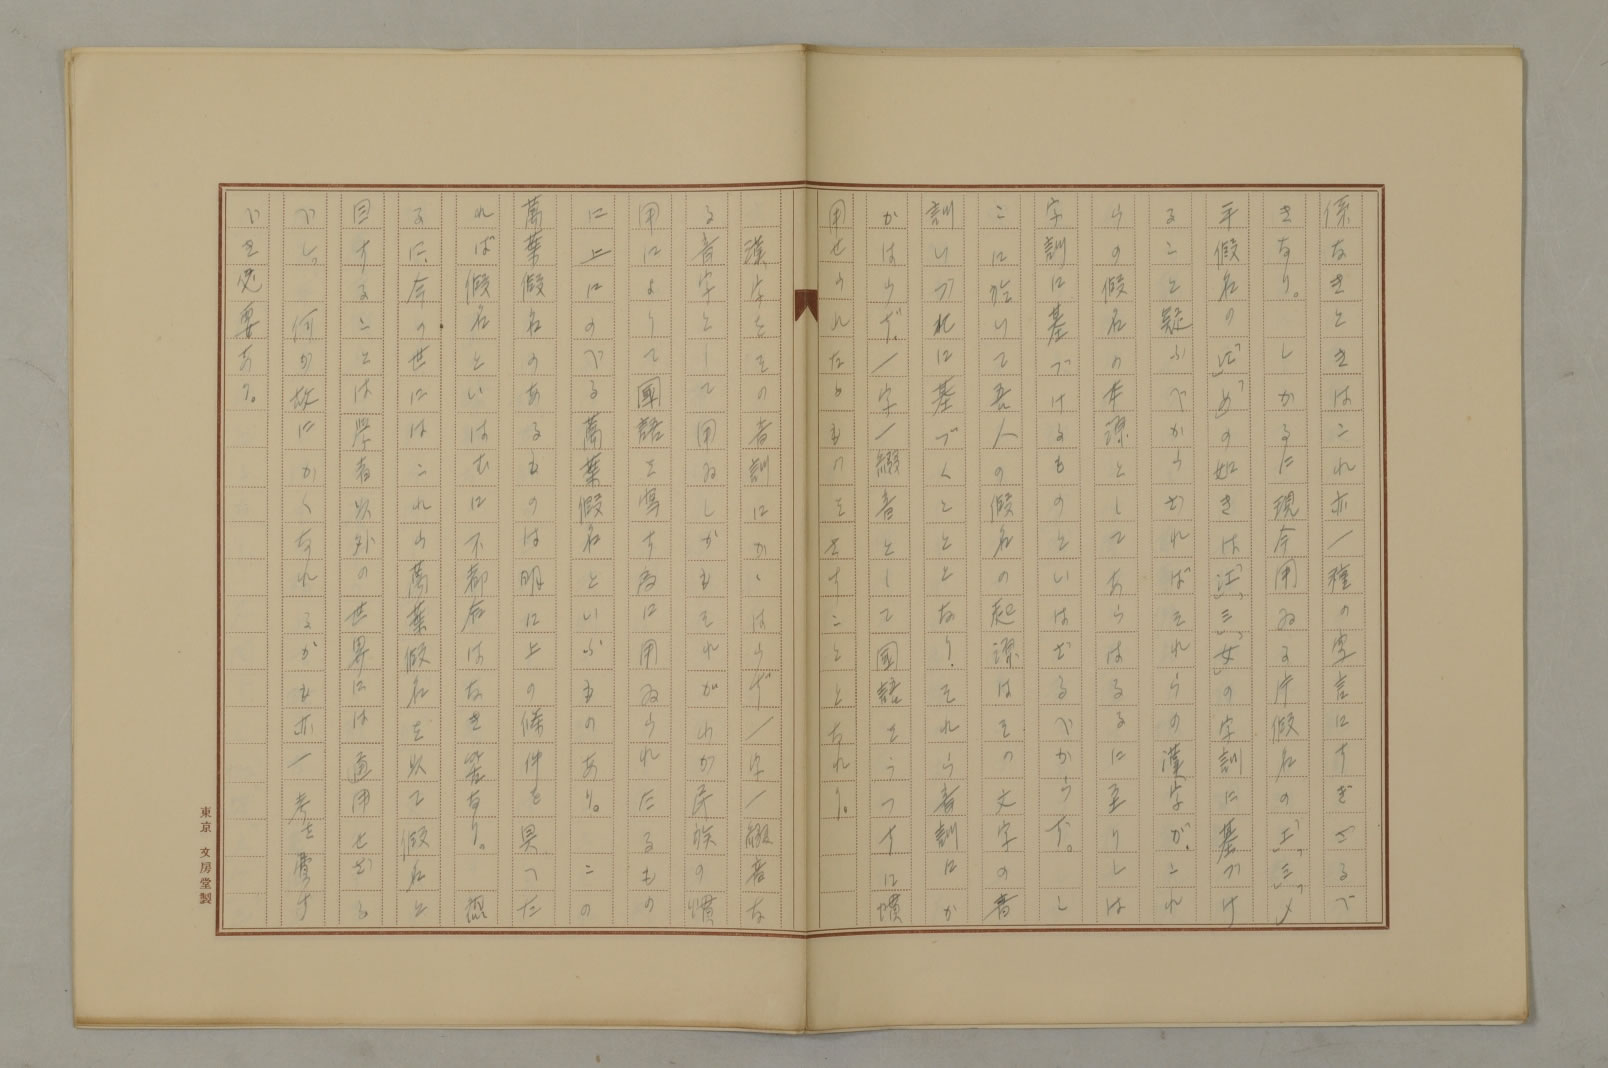 係なきときはこれ亦一種の空言にすぎざるべ
きなり。しかるに現今用ゐる片假名の「エ」「ミ」「メ」
平假名の「江」「め」の如きは「江」「三」「女」の字訓に基づけ
ること疑ふべからざればそれらの漢字が、これ
らの假名の本源としてあらはるるに至りしは
字訓に基づけるものといはざるべからず。こ
こに於いて吾人の假名の起源はその文字の音
訓いづれに基づくことあり、それら音訓にか
かはらず、一字一綴音として國語をうつすに慣
用せられたるものをさすこととなれり。
漢字をその音訓にかゝはらず一字一綴音な
る音字として用ゐしかもそれがわが民族の慣
用によりて國語を寫す為に用ゐられたるもの
に上にのべる萬葉假名といふものあり。この
萬葉假名のあるものは明に上の條件を具へた
れば假名といはむに不都合はなき筈なり。然
るに、今の世にはこれら萬葉假名を以て假名と
目することは學者以外の世界には通用せざる
べし。何が故にかくなれるかも亦一考を要す
べき必要あり。
東京 文房堂製